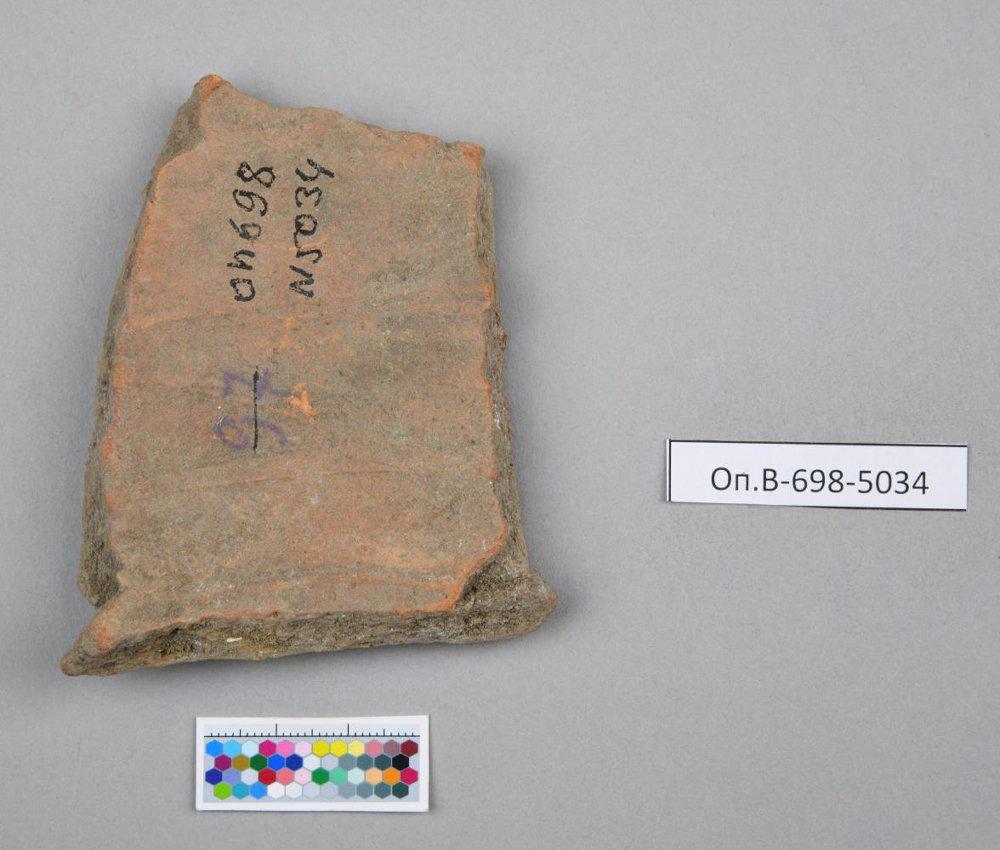 оп698
N5034
97
Оп.В-698-5034